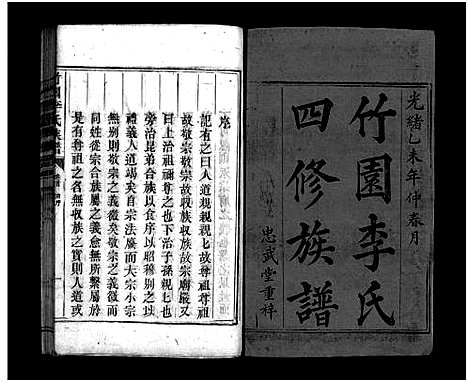 光緒乙未年仲春月
竹園李氏
四修族譜
忠武堂重梓
序
記有之曰人道親親親親故尊祖尊祖
故敬宗敬宗故收族收族故宗廟嚴又
曰上治祖禰尊尊也下治子孫親親也
旁治昆弟合族以食序以昭穆別之以
禮義人道竭矣自宗法廣而大宗小宗
無別則敬宗之義微矣敬宗之義微而
同姓從宗合族屬之義愈無所繫屬於
是有尊祖之名無收族之實則人道或